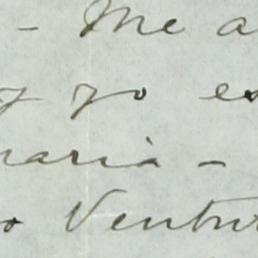 - Me a
y yo es
naria -
o Ventur